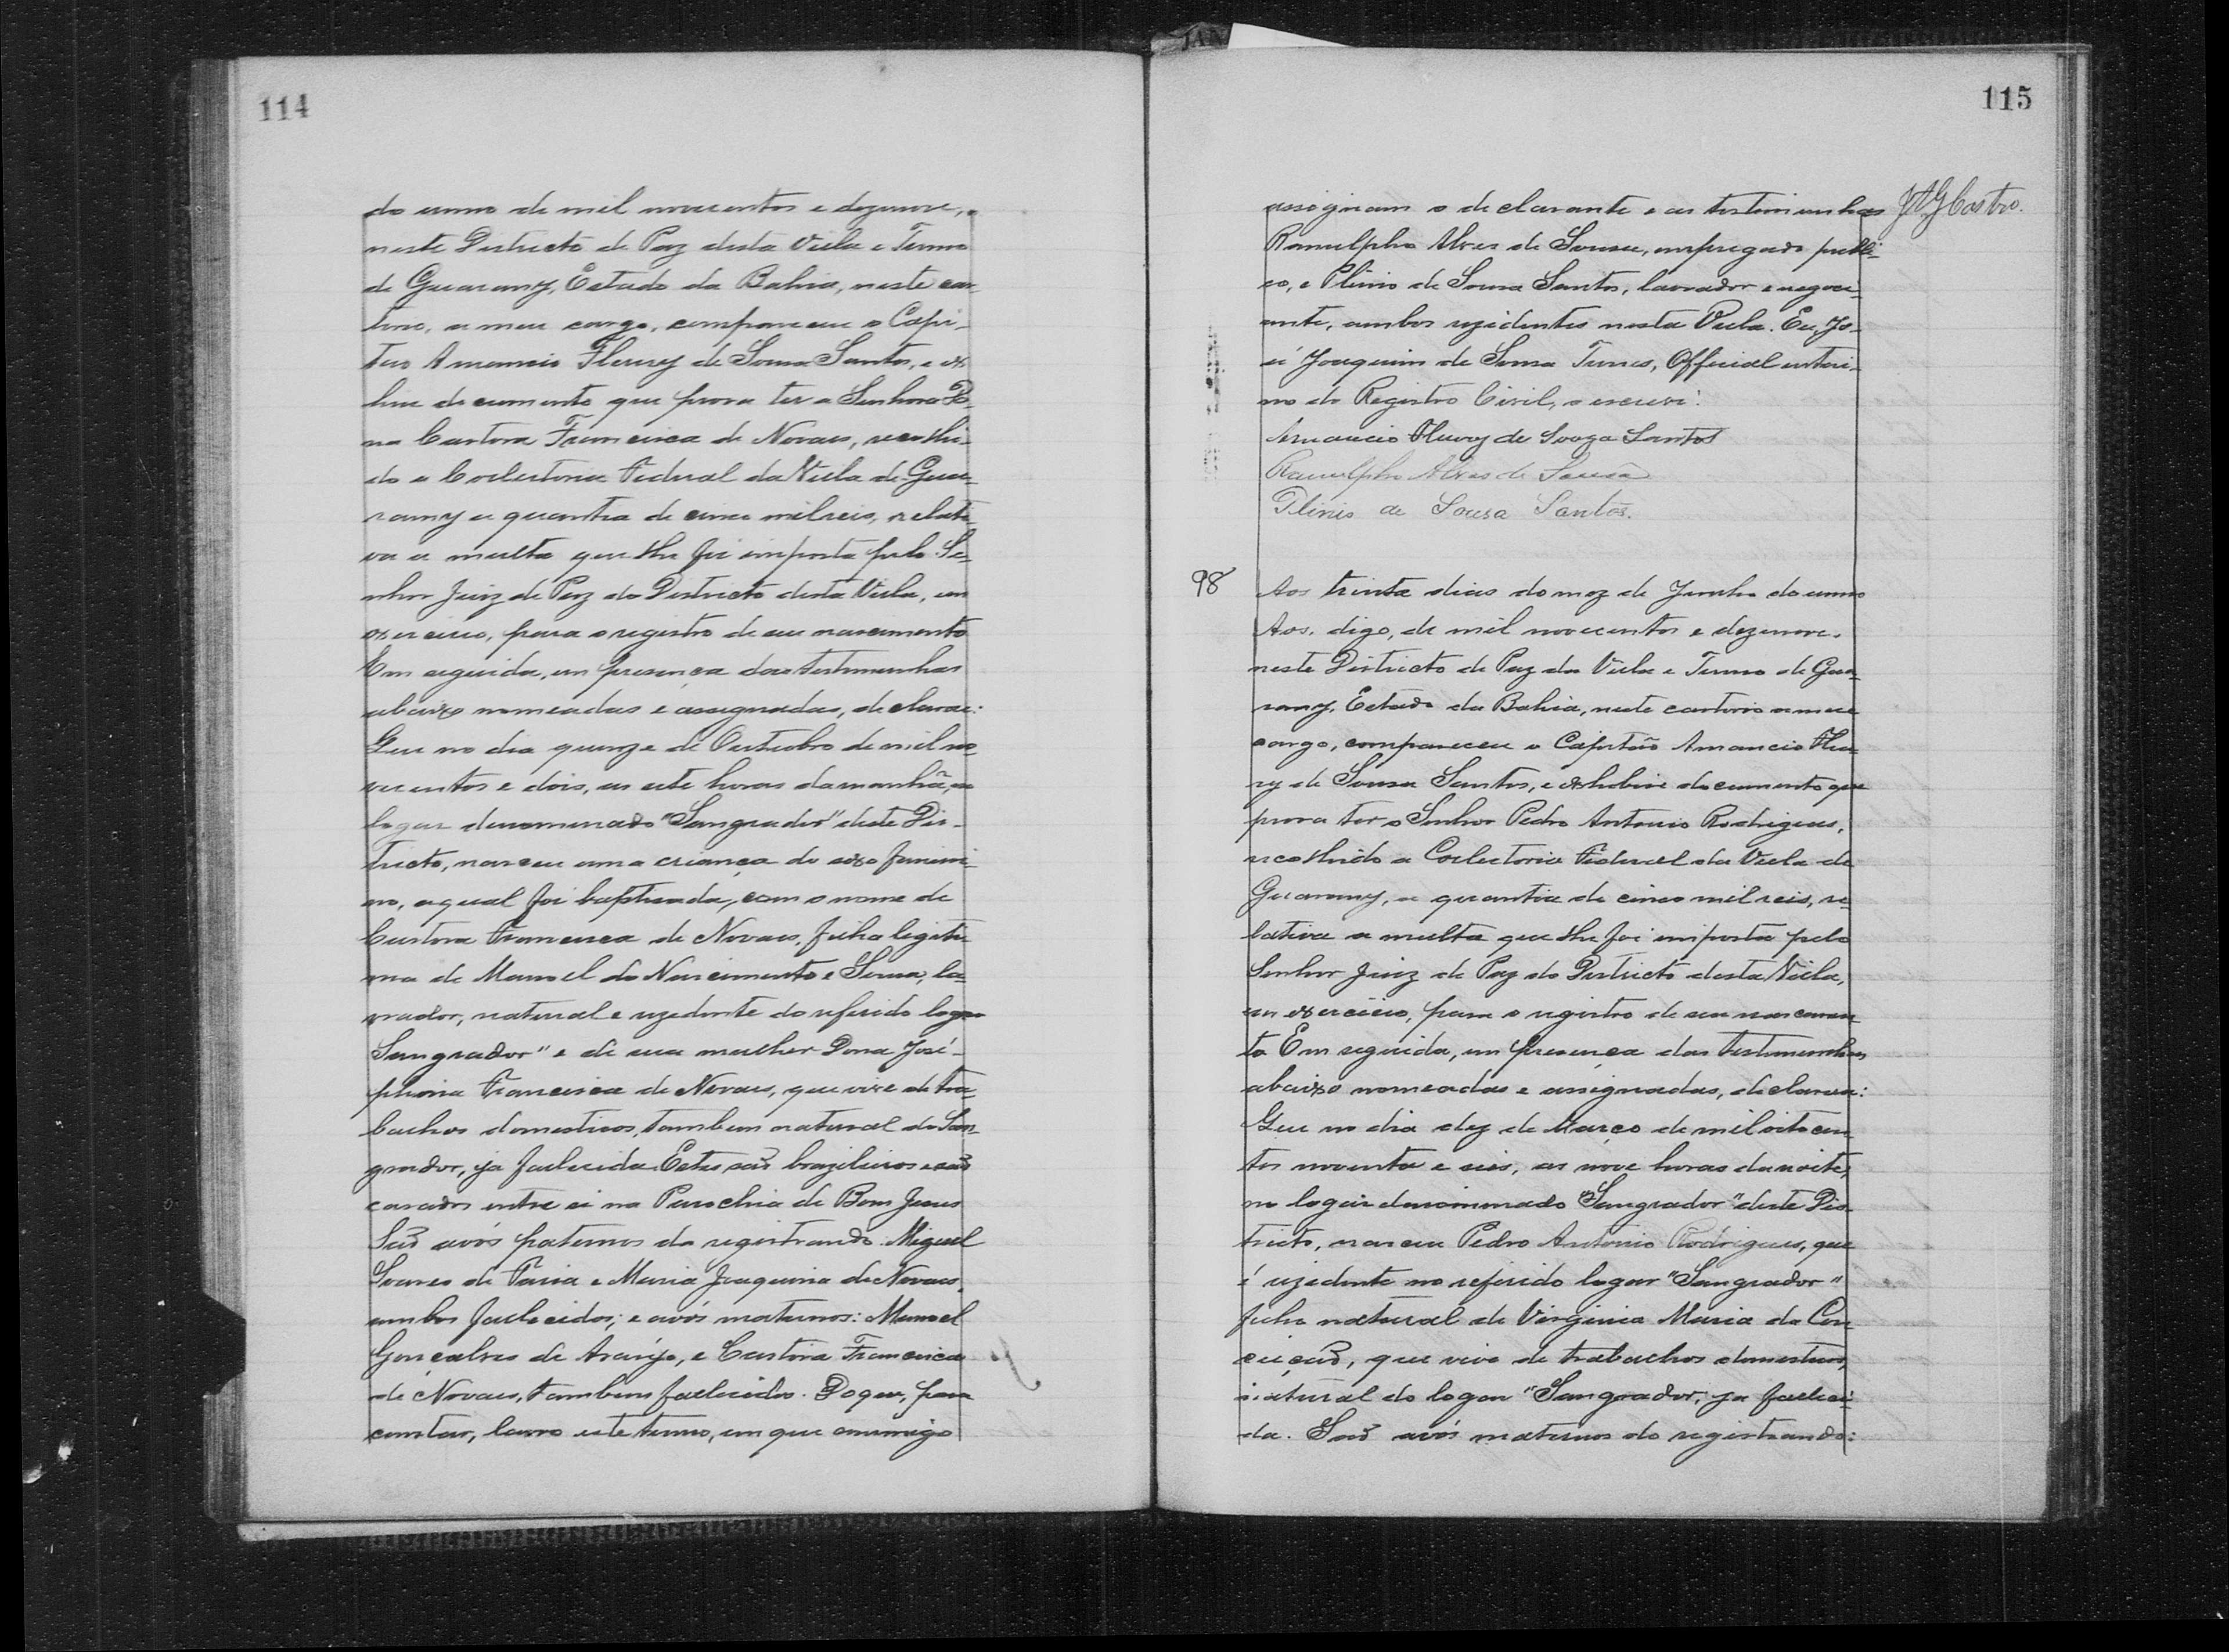 114
do anno de mil novecentos e dezenove,
neste Districto de Paz desta Villa e Termo
de Guarany, Estado da Bahia, neste car-
torio, a meu cargo, compareceu o Capi-
tão Amancio Fleury de Sousa Santos, e ex-
hibiu documento que prova ter a Senhora Do-
na Castora Francisca de Novaes, recolhi-
do a Collectoria Federal da Villa de Gua-
rany a quantia de cinco mil reis, relati-
va a multa que lhe foi imposta pelo Se-
nhor Juiz de Paz do Districto desta Villa, em
exercicio, para o registro de seu nascimento
Em seguida, em presença das testemunhas
abaixo nomeadas e assignadas, declarou:
Que no dia quinze de Outubro de mil no-
vecentos e dois, as sete horas da manhã, no
logar denominado "Sangrador" deste Dis-
tricto, nasceu uma criança do sexo femini-
no, a qual foi baptisada, com o nome de
Castora Francisca de Novaes, filha legiti-
ma de Manoel do Nascimento e Sousa, la-
vrador, natural e rezidente do referido logar
Sangrador" e de sua mulher Dona José-
phina Francisca de Novaes, que vive de tra-
balhos domesticos, tambem natural do San-
grador, ja fallecida. Estes são brazileiros e são
casados entre si na Parochia de Bom Jesus
São avós paternos da registrando: Miguel
Soares de Faria e Maria Joaquina de Novaes,
ambos fallecidos; e avós maternos: Manoel
Gonçalves de Araújo, e Castora Francisca
de Novaes, tambem fallecidos. Do que, para
constar, lavro este termo, em que commigo
115
assignam o declarante e as testemunhas JAGCastro.
Ramulpho Alves de Sousa, empregado publi-
co, e Plinio de Sousa Santos, lavrador e negoci-
ante, ambos rezidentes nesta Villa. Eu, Jo-
sé Joaquim de Sousa Tunes, Official interi-
no do Registro Civil, o escrevi.
Amancio Fleury de Souza Santos
Ramulpho Alves de Sousa
Plinio de Sousa Santos.
98 Aos trinta dias do mez de Junho do anno
Aos, digo, de mil novecentos e dezenove,
neste Districto de Paz da Villa e Termo de Gua-
rany, Estado da Bahia, neste cartorio a meu
cargo, compareceu o Capitão Amancio Fleu-
ry de Sousa Santos, e exhibiu documento que
prova ter o Senhor Pedro Antonio Rodrigues,
recolhido a Collectoria Federal da Villa de
Guarany, a quantia de cinco mil reis, re-
lativa a multa que lhe foi imposta pelo
Senhor Juiz de Paz do Districto desta Villa,
em exercicio, para o registro de seu nascimen-
to. Em seguida, em presença das testemunhas
abaixo nomeadas e assignadas, declarou:
Que no dia dez de Março de mil oitocen-
tos noventa e seis, as nove horas da noite,
no logar denominado "Sangrador" deste Dis-
tricto, nasceu Pedro Antonio Rodrigues, que
é rezidente no referido logar "Sangrador"
filho natural de Virginia Maria da Con-
ceição, que vive de trabalhos domesticos,
natural do logar "Sangrador, ja falleci-
da. São avós maternos do registrando: